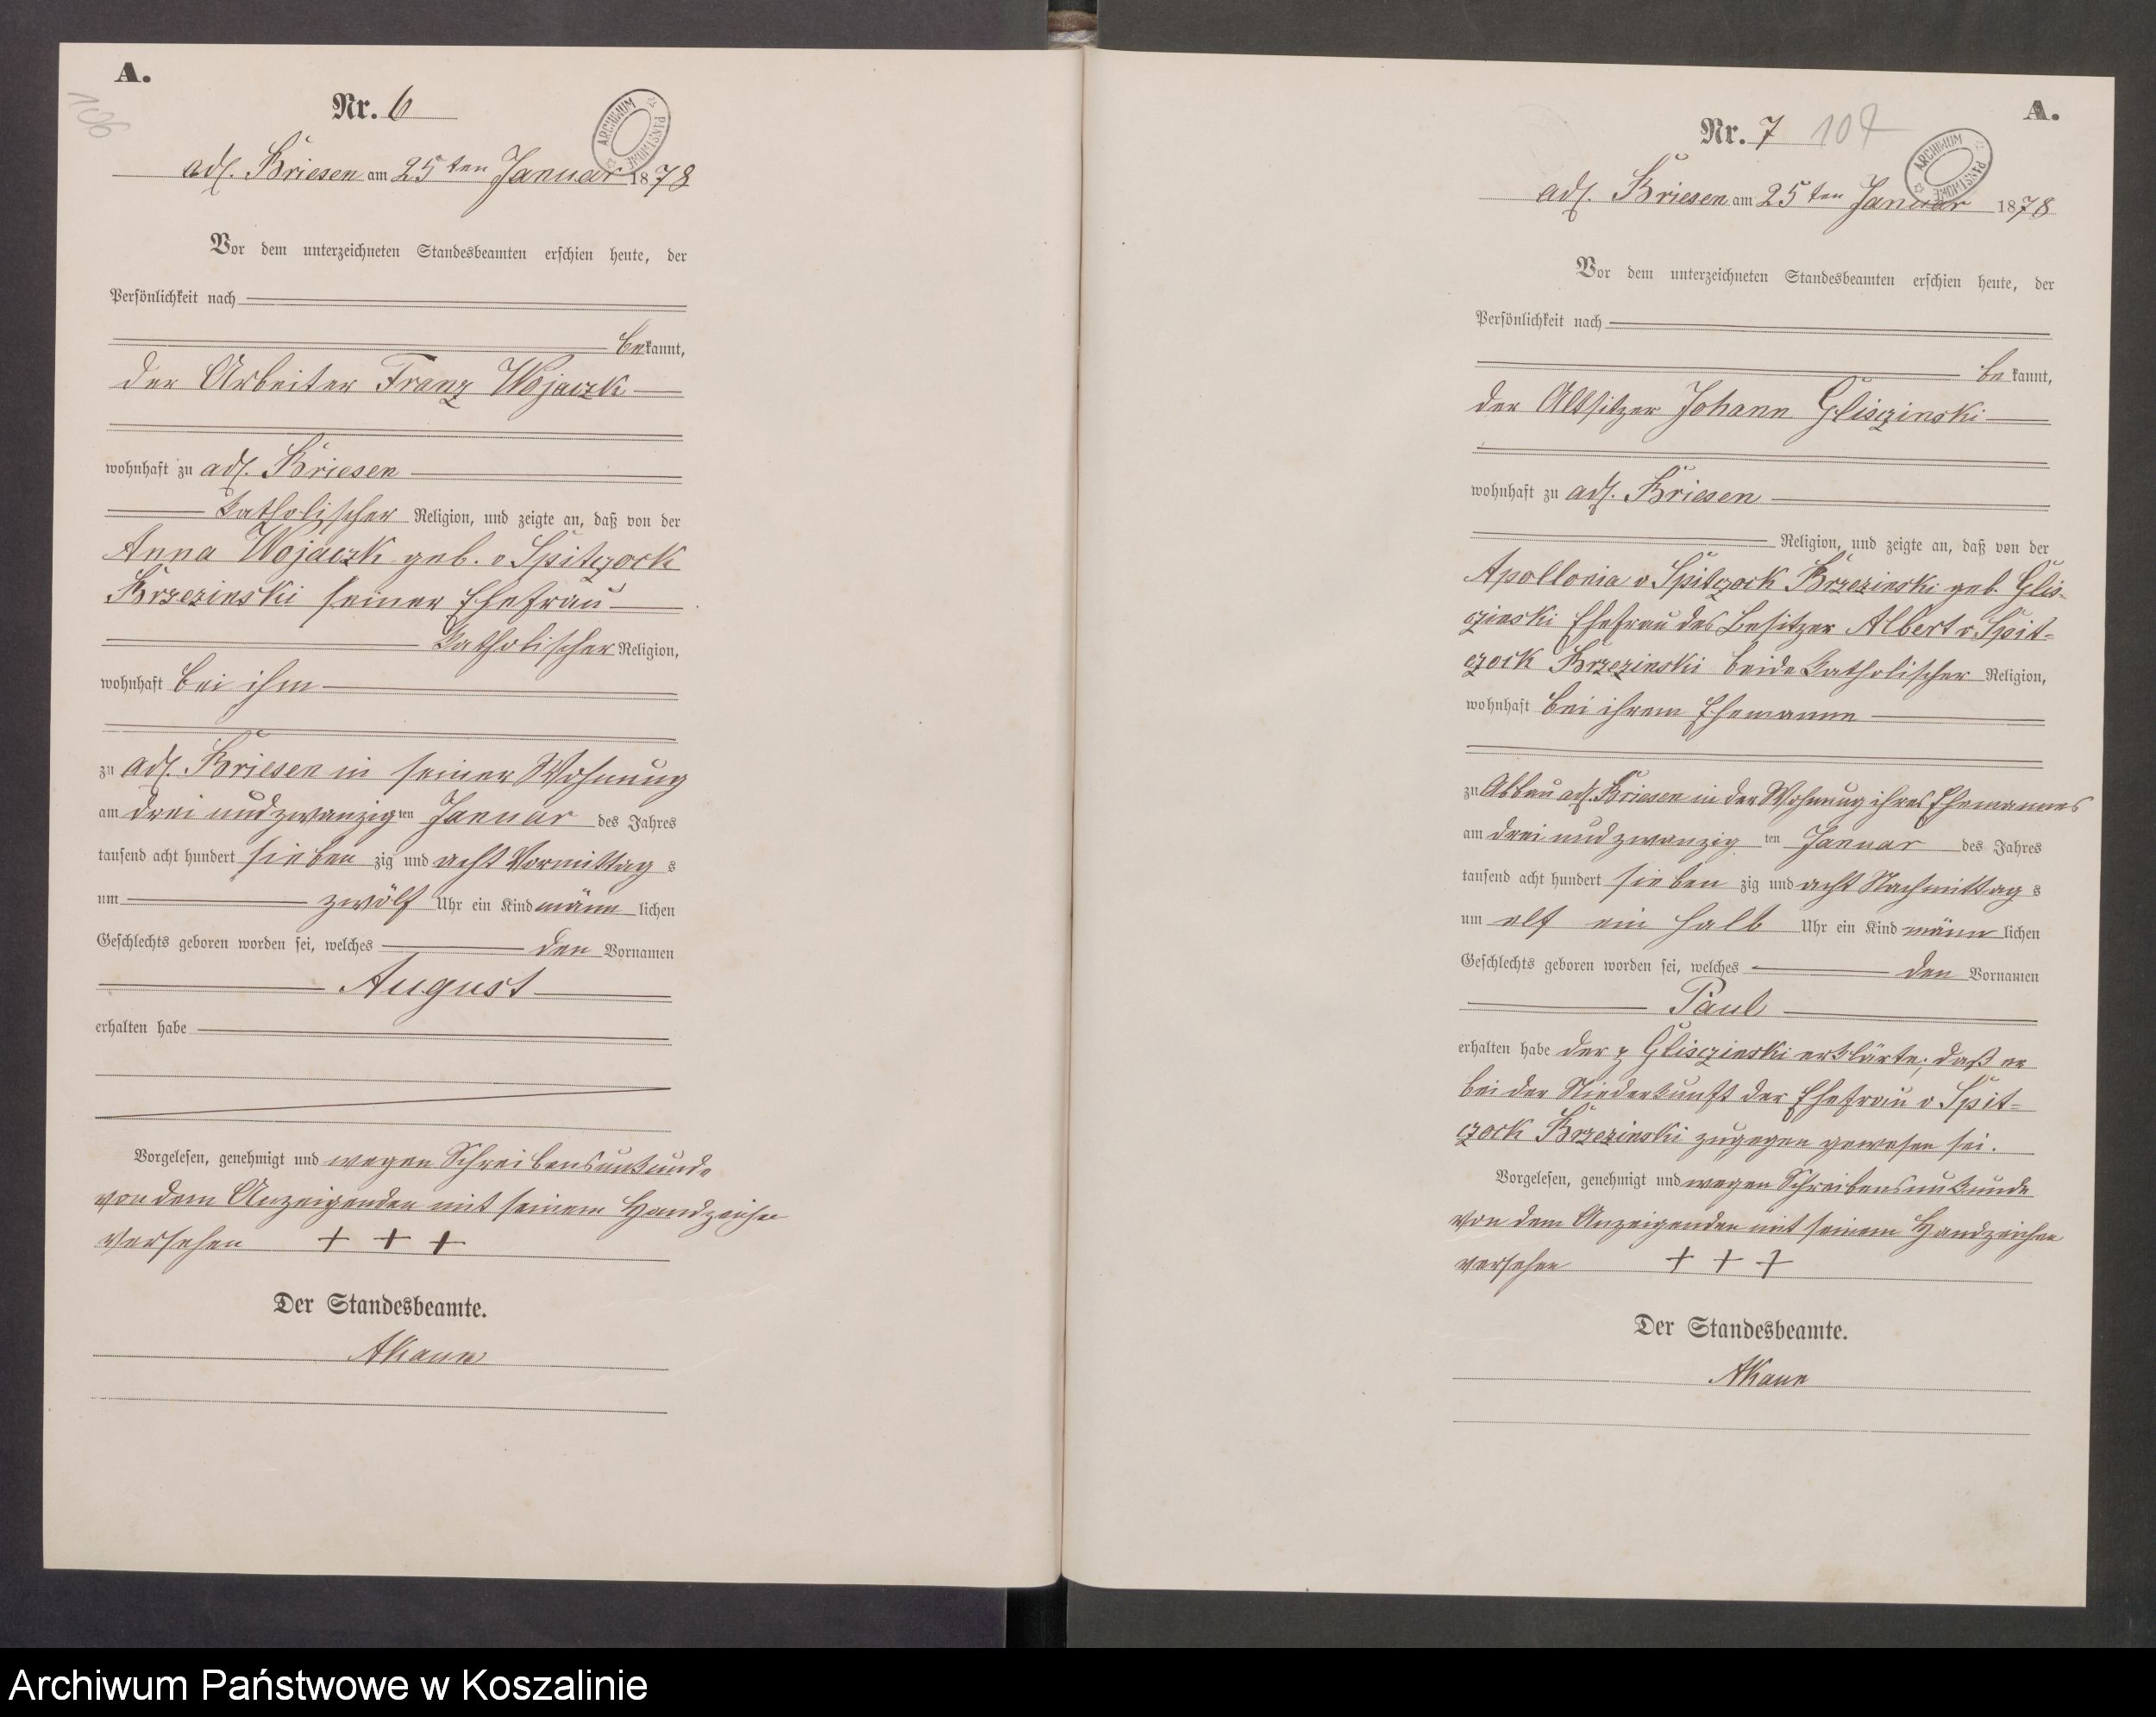 A.
106
Nr. 6
ARCHIWUM PAŃSTWOWE
adl. Briesen am 25ten Januar 1878
Vor dem unterzeichneten Standesbeamten erschien heute, der
Persönlichkeit nach
bekannt,
der Arbeiter Franz Wojaczk
wohnhaft zu adl. Briesen
katholischer Religion, und zeigte an, daß von der
Anna Wojaczk geb. v Spitczock
Brzezinski seiner Ehefrau
katholischer Religion,
wohnhaft bei ihm
zu adl. Briesen in seiner Wohnung
am drei und zwanzigten Januar des Jahres
tausend acht hundert siebenzig und acht Vormittags
um zwölf Uhr ein Kind männlichen
Geschlechts geboren worden sei, welches den Vornamen
August
erhalten habe
Vorgelesen, genehmigt und wegen Schreibensunkunde
von dem Anzeigenden mit seinem Handzeichen
versehen + + +
Der Standesbeamte.
AKaun
A.
Nr. 7 107
ARCHIWUM PAŃSTWOWE
adl. Briesen am 25ten Januar 1878
Vor dem unterzeichneten Standesbeamten erschien heute, der
Persönlichkeit nach
bekannt,
der Altsitzer Johann Glisczinski
wohnhaft zu adl. Briesen
Religion, und zeigte an, daß von der
Apollonia v Spitczock Brzezinski geb. Glis-
czinski Ehefrau des Besitzer Albert v Spit=
czock Brzezinski beide katholischer Religion,
wohnhaft bei ihrem Ehemanne
zu Abbau adl. Briesen in der Wohnung ihres Ehemannes
am drei und zwanzigten Januar des Jahres
tausend acht hundert siebenzig und acht Nachmittags
um elf ein halb Uhr ein Kind männlichen
Geschlechts geboren worden sei, welches den Vornamen
Paul
erhalten habe der Glisczinski erklärte, daß er
bei der Niederkunft der Ehefrau v Spit=
czock Brzezinski zugegen gewesen sei.
Vorgelesen, genehmigt und wegen Schreibensunkunde
von dem Anzeigenden mit seinem Handzeichen
versehen + + +
Der Standesbeamte.
AKaun
Archiwum Państwowe w Koszalinie